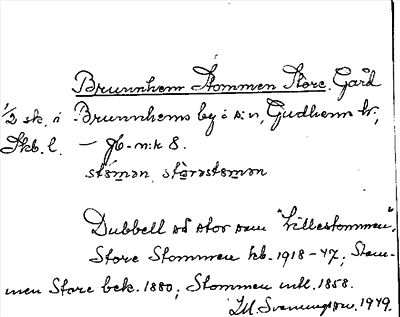 Brunnhem Stommen Store. Gård
1/2 sk. i Brunnhems by i s:n, Gudhems hd,
Skb. l. – Jb. n:r 8.
Dubbell så stor som "Lillestommen".
Store Stommen kb. 1918–47; Stom-
men Store bek. 1880; Stommen mtl. 1858.
1949.